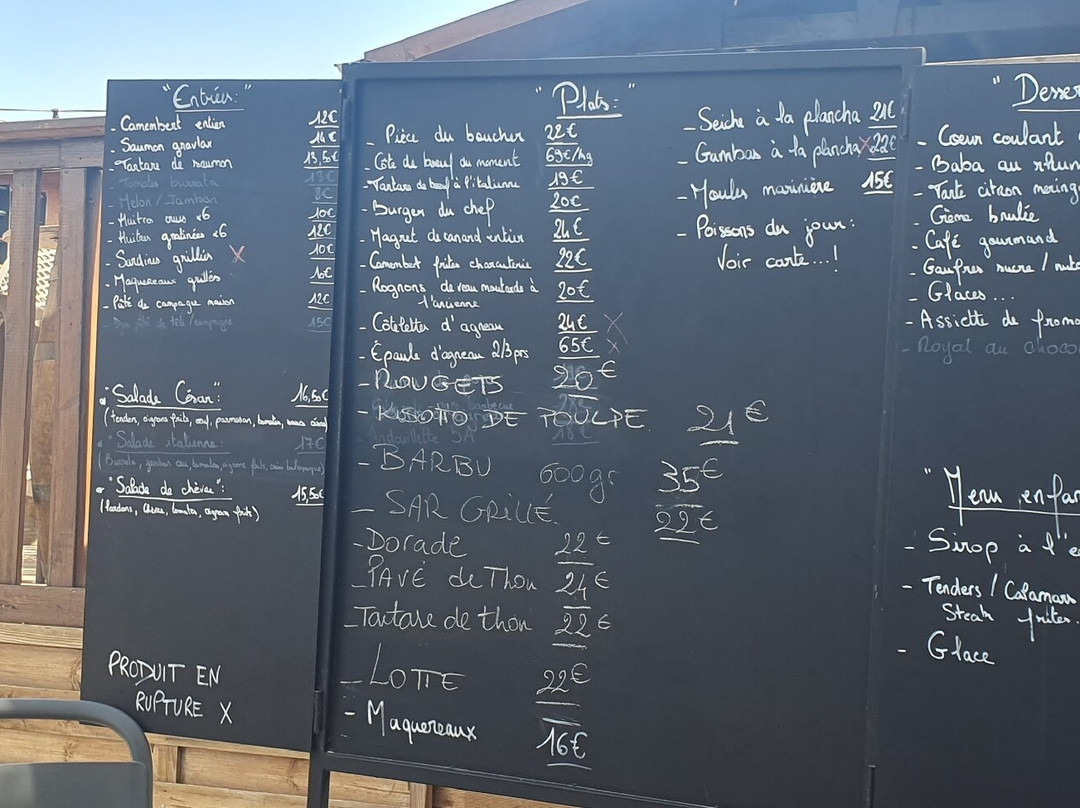 "Entrées:"
- Camembert entier 12€
- Saumon gravlax 11€
- Tartare de saumon 13,5€
- Tomates burrata 13€
- Melon / Jambon 8€
- Huitres crues x6 10€
- Huitres gratinées x6 12€
- Sardines grillées X 10€
- Maquereaux grillés 10€
- Pâté de campagne maison 12€
15€
"Salade César": 16,50€
(tenders, oignons frits, oeuf, parmesan, tomates,
"Salade italienne: 17€
(Burrata, jambon cru, tomates, oignons frits,
"Salade de chèvre": 15,50€
(lardons, chèvre, tomates, oignons frits)
PRODUIT EN
RUPTURE X
"Plats:"
- Pièce du boucher 22€
- Côte de boeuf du moment 69€/kg
- Tartare de boeuf à l'italienne 19€
- Burger du chef 20€
- Magret de canard entier 24€
- Camembert frites charcuterie 22€
- Rognons de veau moutarde à l'ancienne 20€
- Côtelettes d'agneau 24€ X
- Épaule d'agneau 2/3 prs 65€ X
- ROUGETS 20€
- RISOTO DE POULPE 21€
Andouillette 5A 18€
- BARBU 600gr 35€
- SAR GRILLÉ 22€
- Dorade 22€
- PAVÉ de Thon 24€
- Tartare de thon 22€
- LOTTE 22€
- Maquereaux 16€
- Seiche à la plancha 21€
- Gambas à la plancha X 22€
- Moules marinière 15€
- Poissons du jour:
Voir carte...!
" Desser
- Coeur coulant
- Baba au rhum
- Tarte citron mering
- Crème brulée
- Café gourmand
- Gaufres sucre / nute
- Glaces...
- Assiette de froma
- Royal au choco
"Menu enfan
- Sirop à l'e
- Tenders / Calamars
Steak frites.
- Glace